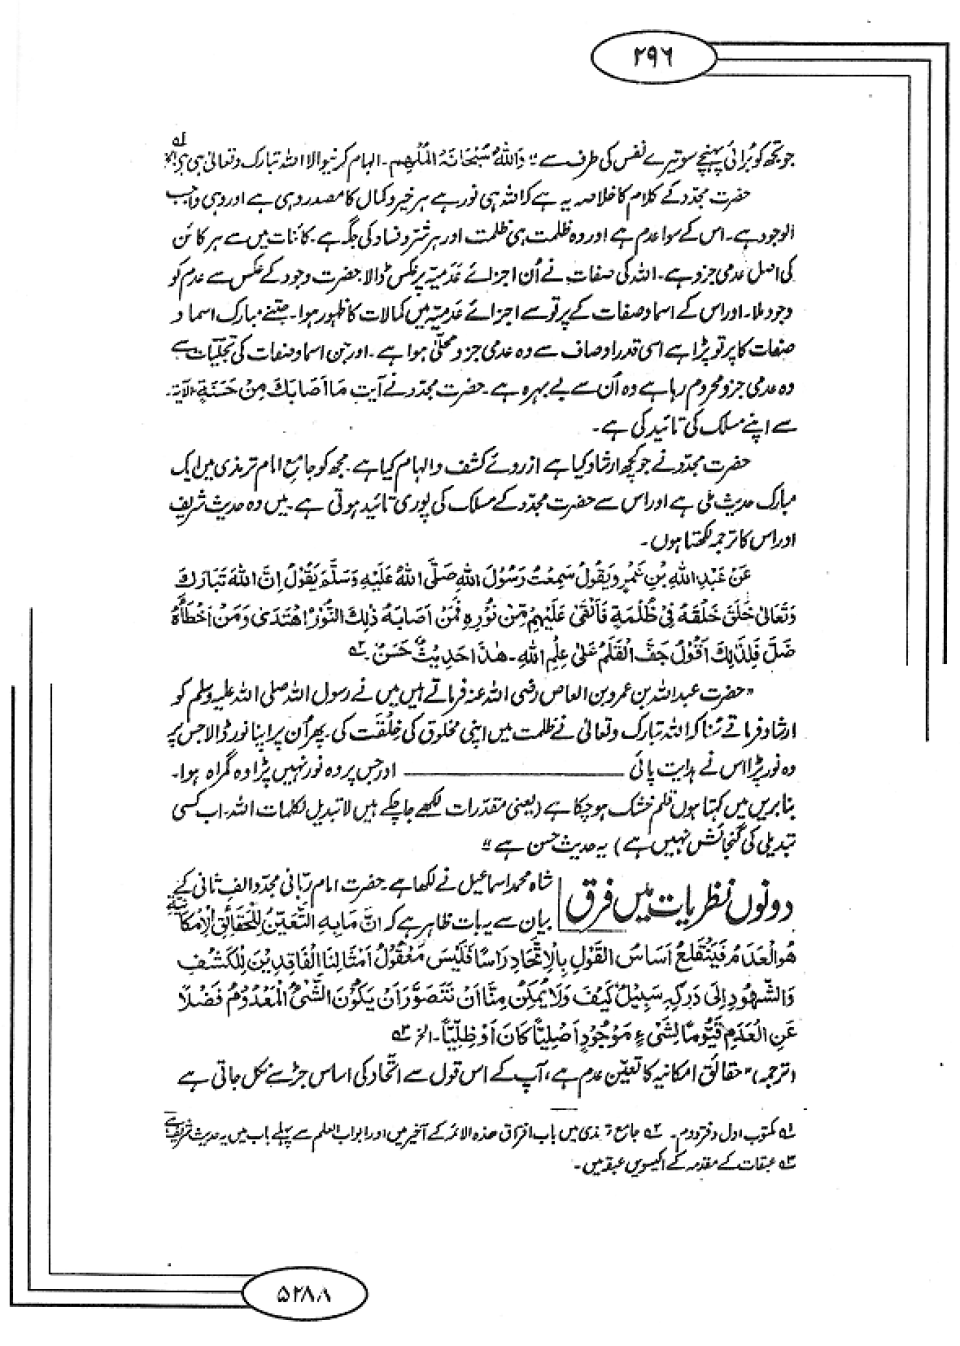 ۲۹۶
جو تجھ کو برائی پہنچے سو تیرے نفس کی طرف سے" وَاللّٰهُ سُبْحَانَهُ الْمُلْهِم۔ الہام کرنیوالا اللہ تبارک وتعالیٰ ہی ہے
حضرت مجدّد کے کلام کا خلاصہ یہ ہے کہ اللہ ہی نور ہے ہر خیر و کمال کا مصدر وہی ہے اور وہی واجب
الوجود ہے۔ اس کے سوا عدم ہے اور وہ ظلمت ہی ظلمت اور ہر شر و فساد کی جگہ ہے۔ کائنات میں سے ہر کائن
کی اصل عدمی جزو ہے۔ اللہ کی صفات نے اُن اجزائے عَدَمیّہ پر عکس ڈالا۔ حضرت وجود کے عکس سے عدم کو
وجود ملا۔ اور اس کے اسما و صفات کے پرتو سے اجزائے عَدَمیّہ میں کمالات کا ظہور ہوا۔ جتنے مبارک اسما و
صفات کا پرتو پڑا ہے اسی قدر اوصاف سے وہ عدمی جزو محلّیٰ ہوا ہے۔ اور جن اسما و صفات کی تجلّیات سے
وہ عدمی جزو محروم رہا ہے وہ اُن سے بے بہرہ ہے۔ حضرت مجدّد نے آیت مَا أَصَابَكَ مِنْ حَسَنَةٍ الآیۃ۔
سے اپنے مسلک کی تائید کی ہے۔
حضرت مجدّد نے جو کچھ ارشاد کیا ہے از روئے کشف و الہام کیا ہے۔ مجھ کو جامع امام ترمذی میں ایک
مبارک حدیث ملی ہے اور اس سے حضرت مجدّد کے مسلک کی پوری تائید ہوتی ہے۔ میں وہ حدیث شریف
اور اس کا ترجمہ لکھتا ہوں۔
عَنْ عَبْدِ اللهِ بْنِ عَمْرٍو يَقُولُ سَمِعْتُ رَسُولَ اللهِ صَلَّى اللهُ عَلَيْهِ وَسَلَّمَ يَقُولُ إِنَّ اللهَ تَبَارَكَ
وَتَعَالَى خَلَقَ خَلْقَهُ فِي ظُلْمَةٍ فَأَلْقَى عَلَيْهِمْ مِّنْ نُوْرِهِ فَمَنْ أَصَابَهُ ذٰلِكَ النُّوْرُ اهْتَدَى وَمَنْ أَخْطَأَهُ
ضَلَّ فَلِذٰلِكَ أَقُوْلُ جَفَّ الْقَلَمُ عَلَى عِلْمِ اللهِ۔ هٰذَا حَدِيْثٌ حَسَنٌ ۲ھ
"حضرت عبداللہ بن عمرو بن العاص رضی اللہ عنہ فرماتے ہیں میں نے رسول اللہ صلی اللہ علیہ وسلم کو
ارشاد فرماتے سُنا کہ اللہ تبارک وتعالیٰ نے ظلمت میں اپنی مخلوق کی خِلْقَت کی۔ پھر اُن پر اپنا نور ڈالا جس پر
وہ نور پڑا اس نے ہدایت پائی ــــــــــــ اور جس پر وہ نور نہیں پڑا وہ گمراہ ہوا۔
بنابریں میں کہتا ہوں قلم خشک ہو چکا ہے (یعنی مقدّرات لکھے جاچکے ہیں لا تبدیل لکلمات اللہ، اب کسی
تبدیلی کی گنجائش نہیں ہے) یہ حدیث حسن ہے"
دونوں نظریات میں فرق
شاہ محمد اسماعیل نے لکھا ہے۔ حضرت امام ربّانی مجدّد الف ثانی کے
بیان سے یہ بات ظاہر ہے کہ اِنَّ مَا بِهِ التَّعَيُّنُ لِلْحَقَائِقِ الْإِمْكَانِيَّةِ
هُوَ الْعَدَمُ فَيَنْقَلِعُ أَسَاسُ الْقَوْلِ بِالْإِتِّحَادِ رَأْسًا فَلَيْسَ مَعْقُوْلُ أَمْثَالِنَا الْفَاقِدِيْنَ لِلْكَشْفِ
وَالشُّهُوْدِ إِلَى دَرْكِهِ سَبِيْلٌ كَيْفَ وَلَا يُمْكِنُ مِنَّا أَنْ نَتَصَوَّرَ أَنْ يَكُوْنَ الشَّيْءُ الْمَعْدُوْمُ فَضْلًا
عَنِ الْعَدَمِ قَيُّوْمًا لِشَيْءٍ مَوْجُوْدٍ أَصْلِيًّا كَانَ أَوْ ظِلِّيًّا۔ الخ ۳ھ
(ترجمہ) "حقائق امکانیہ کا تعیّن عدم ہے، آپ کے اس قول سے اتّحاد کی اساس جڑ سے نکل جاتی ہے
۱ھ مکتوب اول دفتر دوم۔ ۲ھ جامع ترمذی میں باب افتراق ھذہ الامۃ کے آخر میں اور ابواب العلم سے پہلے باب میں یہ حدیث شریف ہے
۳ھ عبقات کے مقدمہ کے اکیسویں عبقہ میں۔
۵۲۸۸